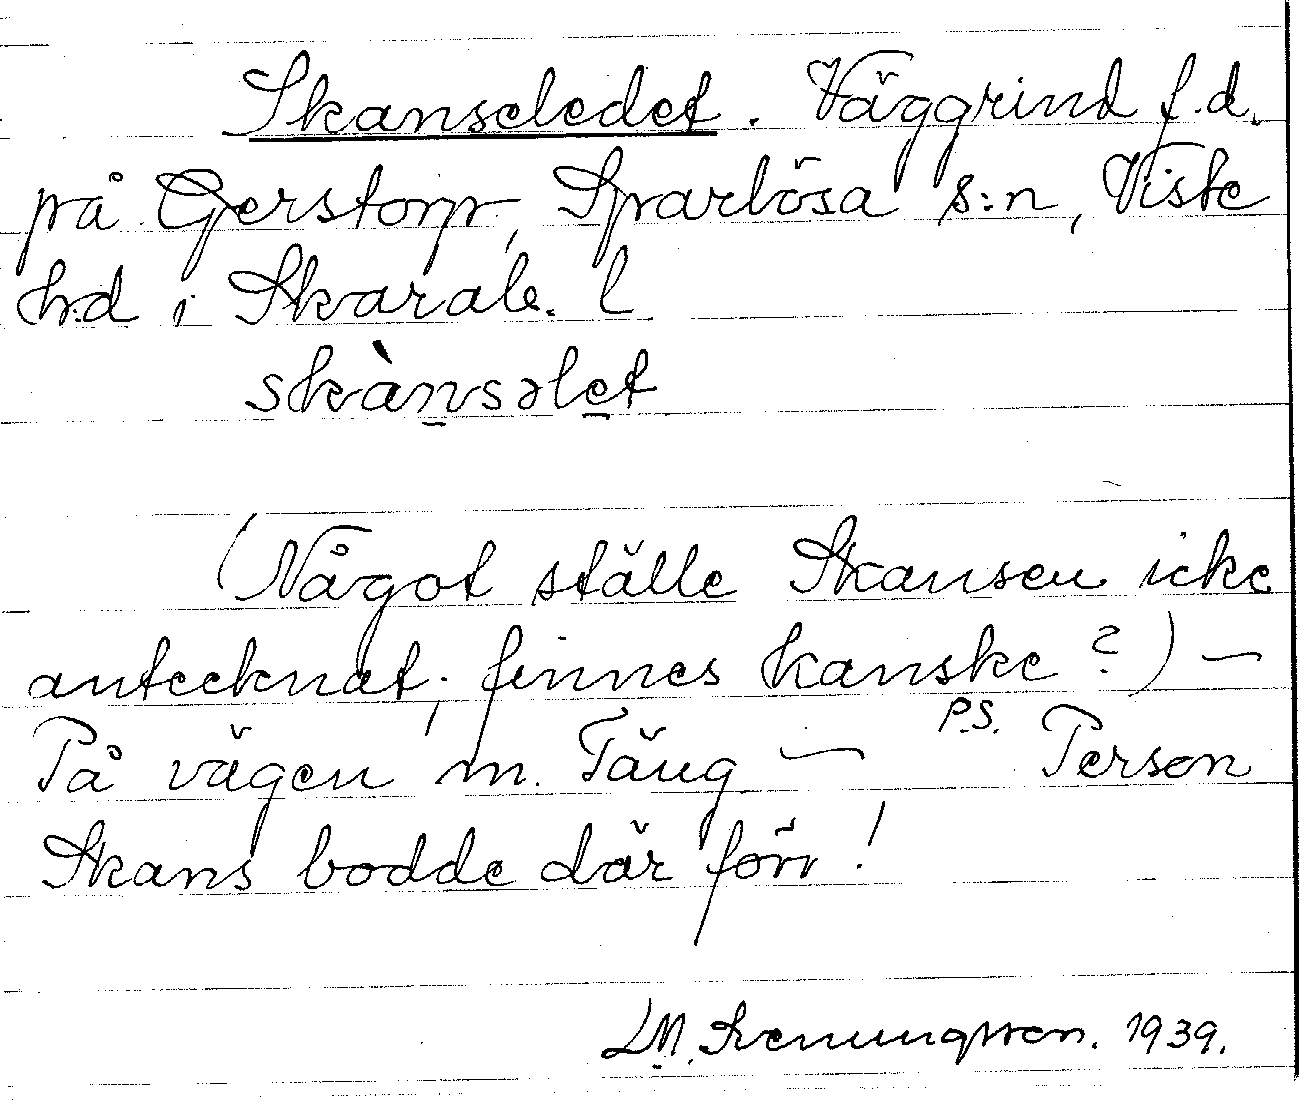 Skanseledet. Väggrind f.d.
på Gerstorp, Sparlösa s:n, Viste
h:d i Skarab. l
skànsəlet
(Något ställe Skansen icke
antecknat; finnes kanske?) —
På vägen m. Täng — P.S. Person
Skans bodde där förr!
LM. Svenungsson. 1939.